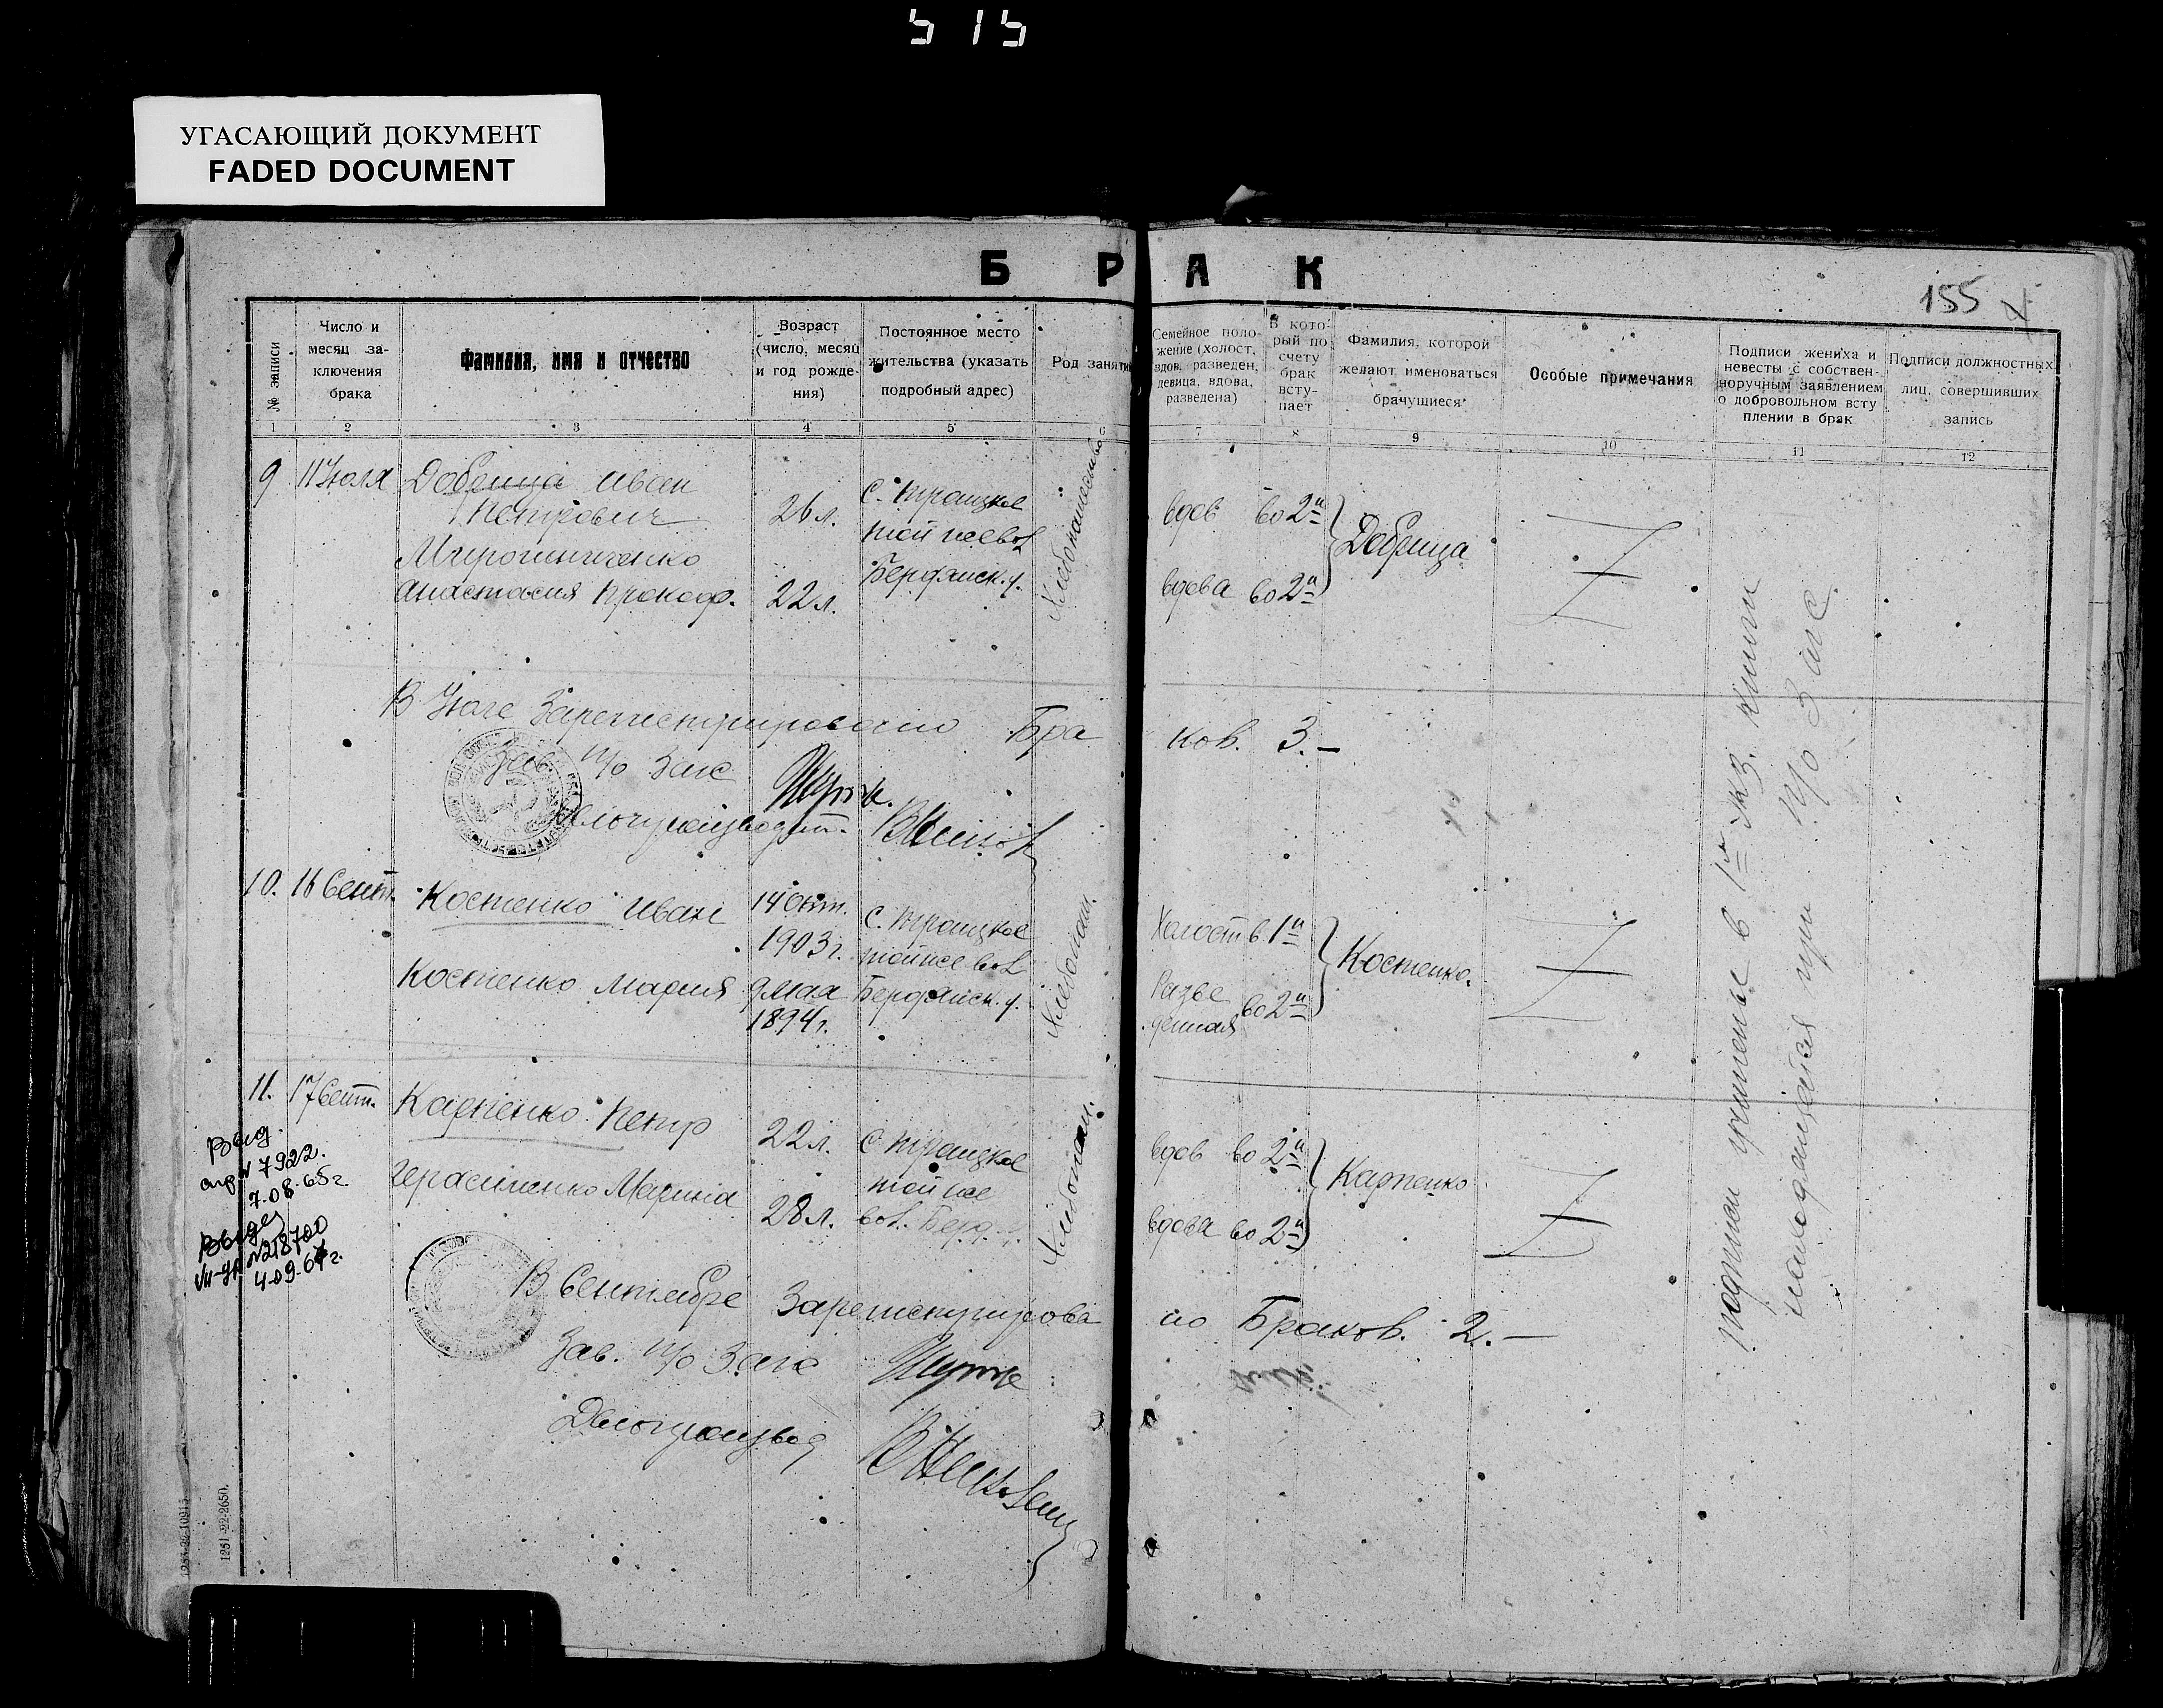 515
УГАСАЮЩИЙ ДОКУМЕНТ
FADED DOCUMENT
БРАК
155
№ записи
Число и месяц заключения брака
Фамилия, имя и отчество
Возраст (число, месяц и год рождения)
Постоянное место жительства (указать подробный адрес)
Род заняти
Семейное положение (холост, вдов, разведен, девица, вдова, разведена)
В который по счету брак вступает
Фамилия, которой желают именоваться брачущиеся
Особые примечания
Подписи жениха и невесты с собственноручным заявлением о добровольном вступлении в брак
Подписи должностных лиц, совершивших запись
1 2 3 4 5 6 7 8 9 10 11 12
9 11 Июля Добрица Иван
Петрович 26 л.
Мирошниченко
Анастасия Прокоф. 22 л.
с. Троицкое
той же вол
Бердянск. у.
Хлебопашество
вдов во 2й
вдова во 2й
Добрица
В Июле Зарегистрировано Бра
ков. 3.—
Зав. п/о Загс
Делопроизводит.
10. 16 Сент. Костенко Иван 14 Окт.
1903 г.
Костенко Мария 9 мая
1894 г.
с. Троицкое
той же вол
Бердянск. у.
Хлебопаш.
Холост в 1й
Разве
денная во 2й
Костенко.
11. 17 Сент. Карпенко Петр 22 л.
Герасименко Мария 28 л.
с. Троицкое
той же
вол. Берд. у.
Хлебопаш.
вдов во 2й
вдова во 2й
Карпенко
Выд.
N 7922.
7.08.65 г
Выдан
N218700
4.09.67 г.
В Сентябре Зарегистрирова
но Браков. 2.—
Зав. п/о Загс
Делопроизвод
подписи учинены в 1м экз. книги
находящейся при п/о Загс
1251-22-2650.